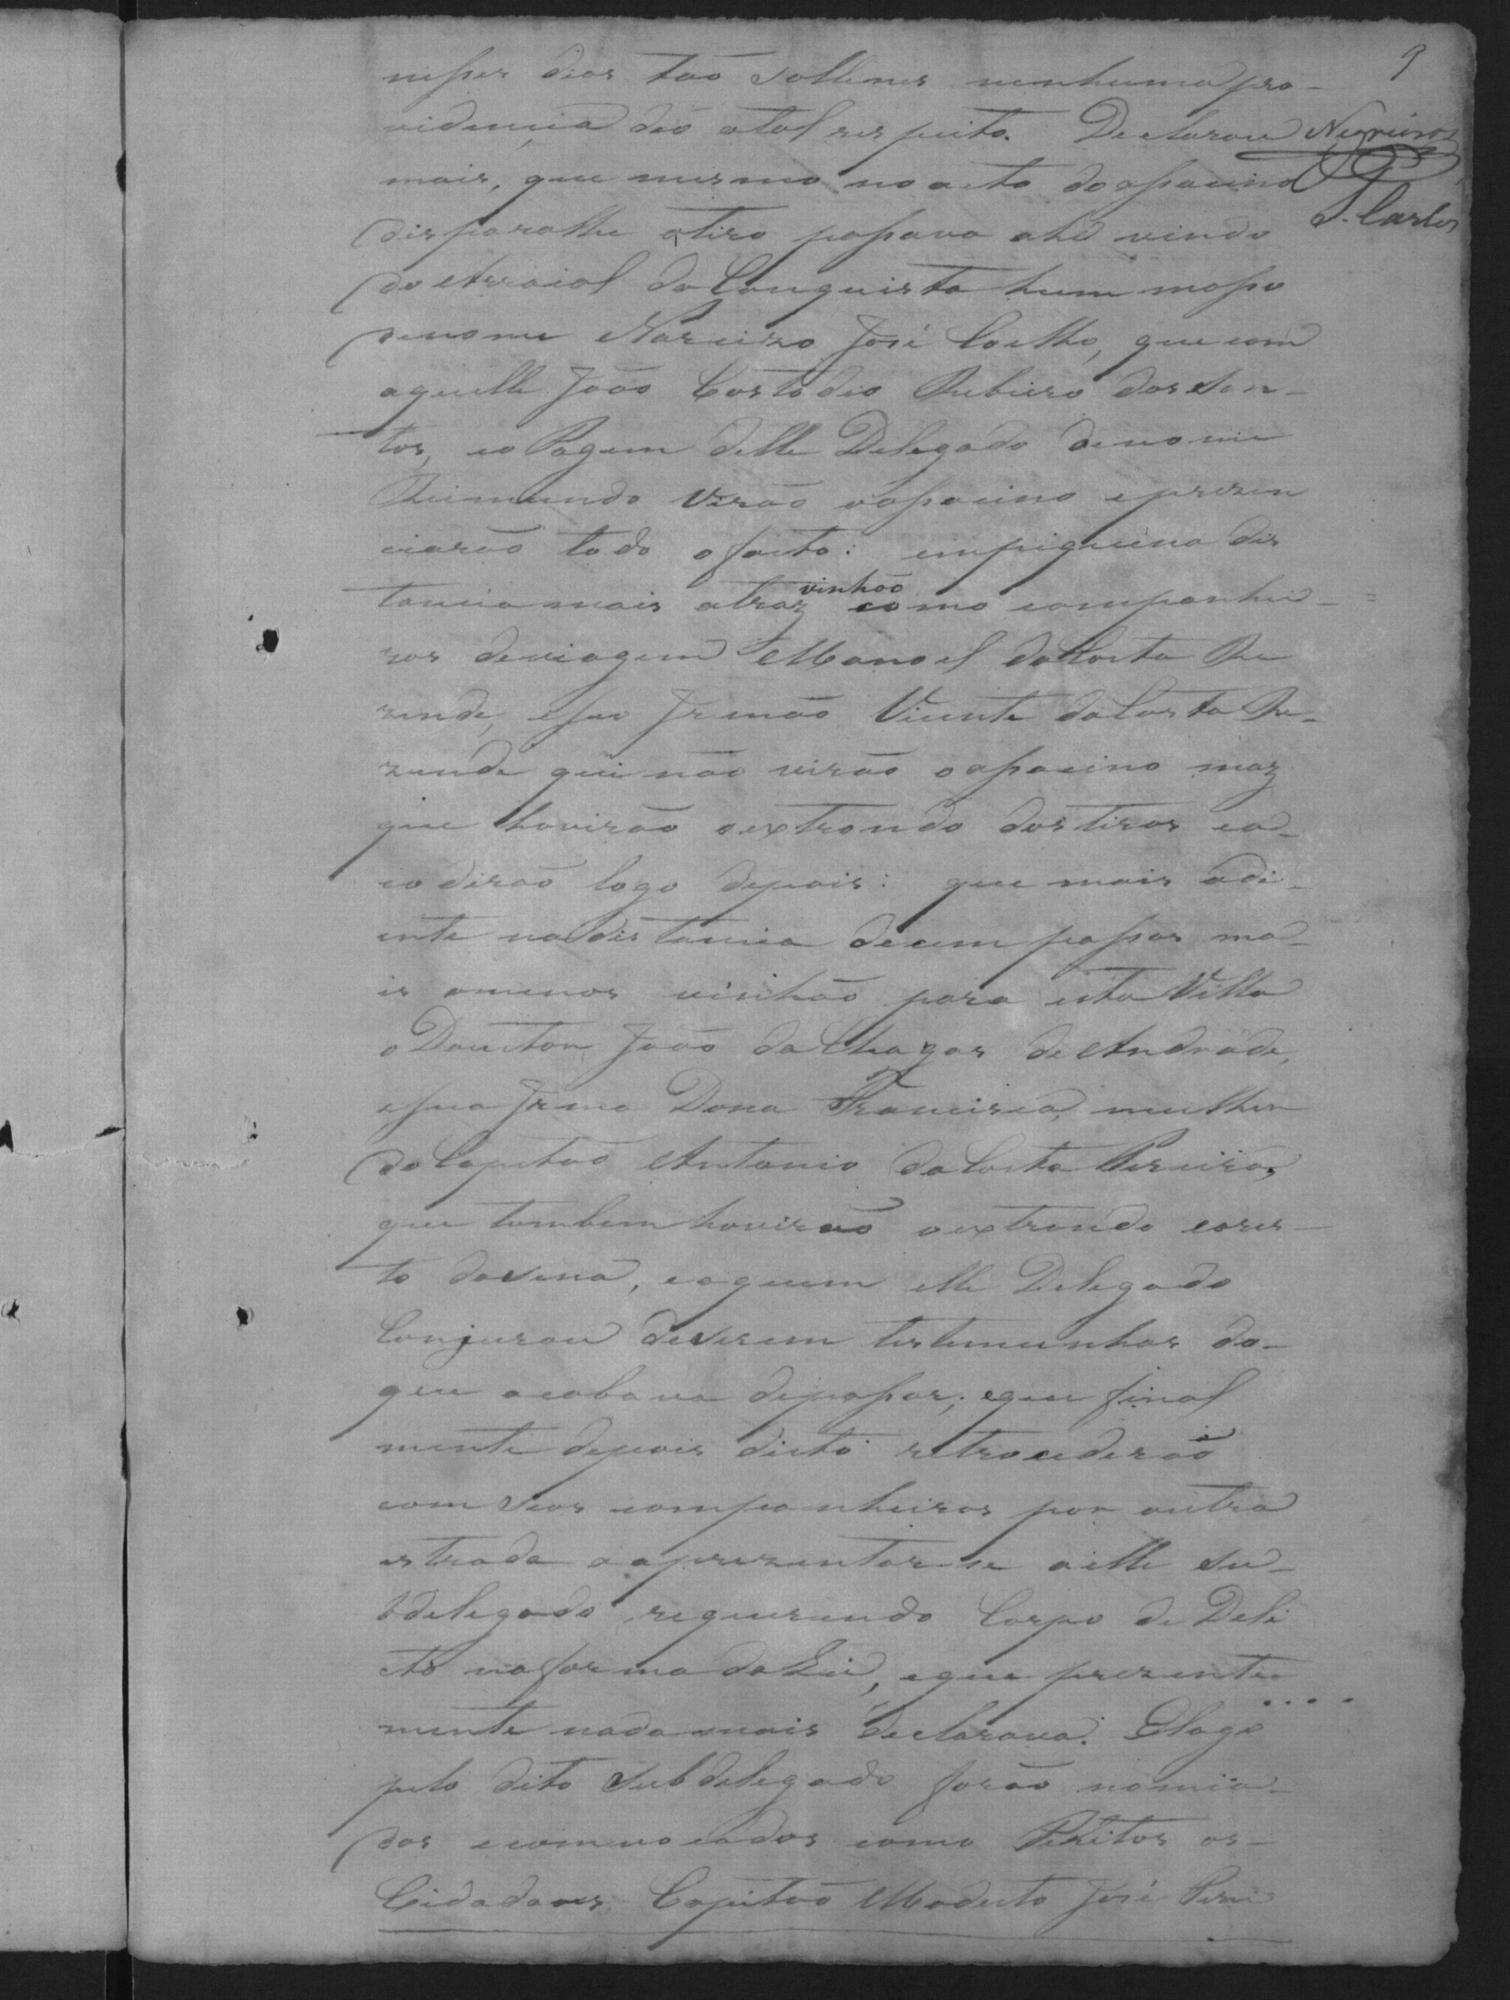 9
nesses dias tão sollemes nenhuma pro-
videncia deo atal respeito. Declarou
Negreiros
mais, que mesmo no acto do assacino
S. Carlos
disparalhe otiro passava ahi vindo
do Arraial da Conquista hum moço
denome Narcizo José Coelho, que com
aquelle João Costodio Rubeiro dos San-
tos, eo Pagem delle Delegado denome
Reimundo virão oassacino eprezen
ciarão todo ofacto: empiquena dis
tancia mais atraz vinhão como companhei-
ros deviagem Manoel da Costa Re
zende, eseo Irmão Vicente da Costa Re-
zende qui não virão oassacino maz
que houvirão oextrondo dos tiros ea-
codirão logo depois: que mais adi-
ente nadistancia decem passos ma-
is omenos vinhão para esta Villa
o Douctor João da Chagas de Andrade,
esua Irma Dona Francisca, mulher
do Capitão Antonio da Costa Pereira,
que tambem houvirão oextrondo eores-
to dasena, eaquem elle Delegado
Conjurou deserem testemunhas do-
que acabava depassar; eque final
mente depois disto retrocederão
com seos companheiros por outra
estrada aaprezentar-se aelle Su-
bdelegado, requerendo Corpo de Deli
cto naforma da Lei, eque prezente
mente nada mais declarava. Elogo
pelo dito Subdelegado forão nomia-
dos econvocados como Peritos os-
Cidadaons Capitão Modesto José Perei